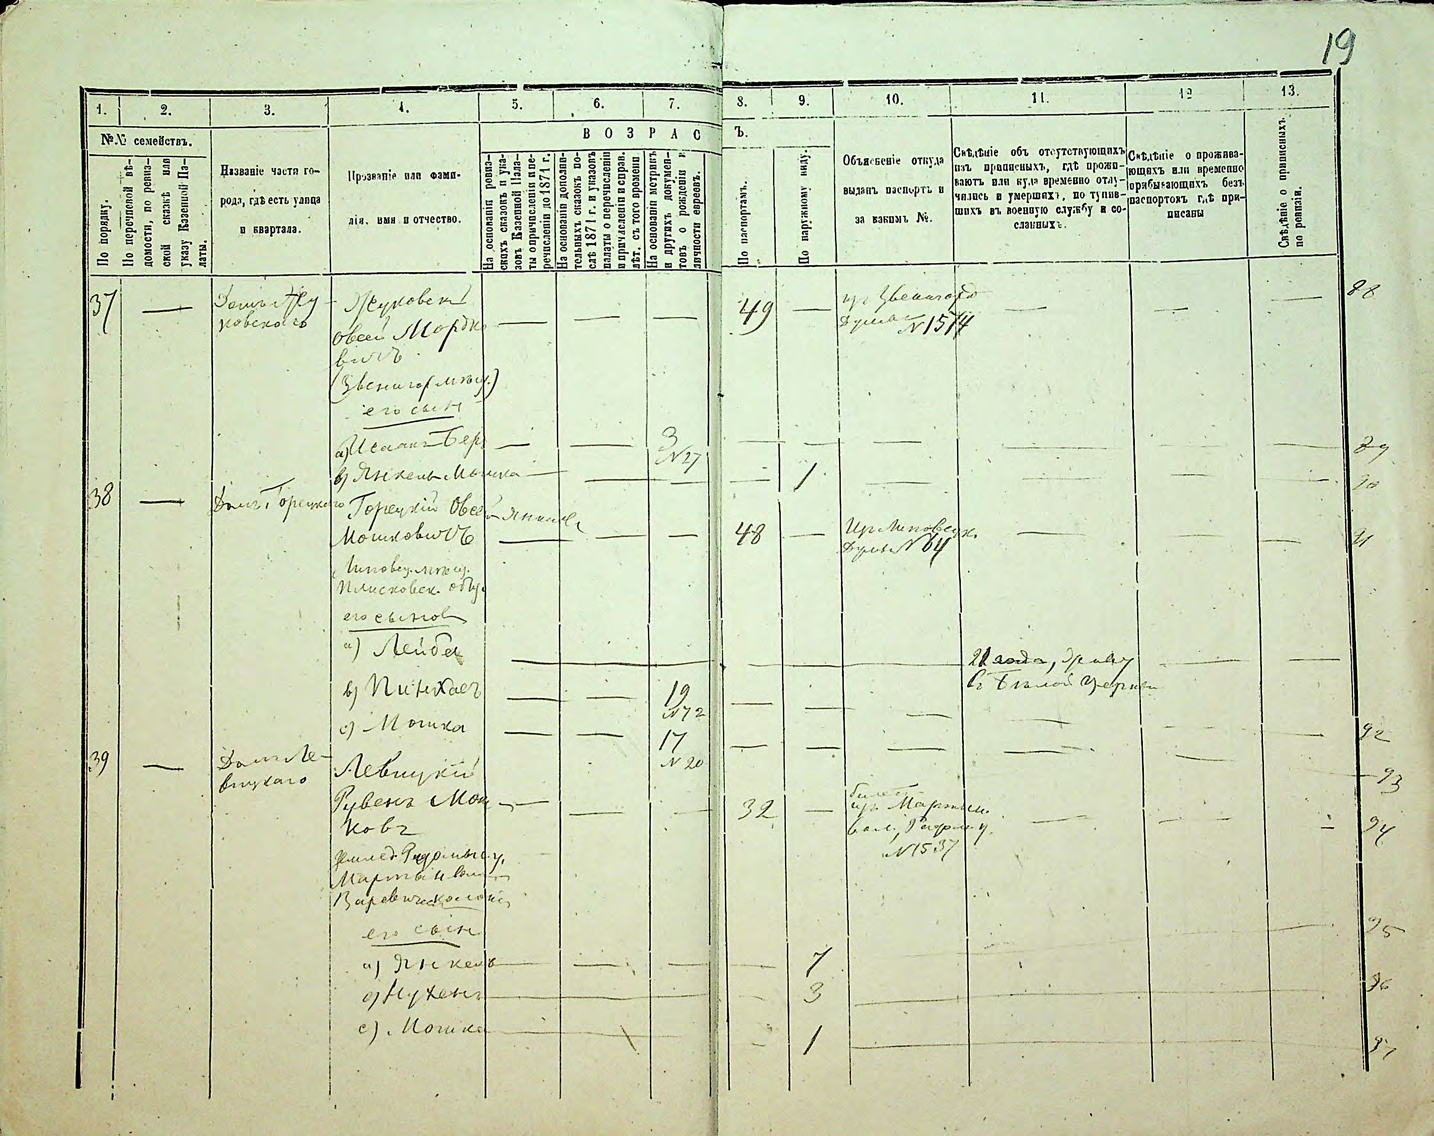 19
1. 2. 3. 4. 5. 6. 7. 8. 9. 10. 11. 12 13.
№№ семействъ.
По порядку.
По перечневой вѣ-
домости, по ревиз-
ской сказкѣ или
указу Казенной Па-
латы.
Названіе части го-
рода, гдѣ есть улица
и квартала.
Прозваніе или фами-
лія, имя и отчество.
ВОЗРАС
Ъ.
На основаніи ревиз-
скихъ сказокъ и ука-
зовъ Казенной Пала-
ты о причисленіи и пе-
речисленіи до 1871 г.
На основаніи дополни-
тельныхъ сказокъ по-
слѣ 1871 г. и указовъ
палаты о перечисленіи
и причисленіи и справ.
лѣт. съ того времени
На основаніи метрикъ
и другихъ докумен-
товъ о рожденіи и
личности евреевъ.
По паспортамъ.
По наружному виду.
Объясненіе откуда
выданъ паспортъ и
за какимъ №.
Свѣдѣніе объ отсутствующихъ
изъ приписныхъ, гдѣ прожи-
ваютъ или куда временно отлу-
чились и умершихъ, по тупив-
шихъ въ военную службу и со-
сланныхъ.
Свѣдѣніе о прожива-
ющихъ или временно
прибывающихъ безъ
паспортовъ гдѣ при-
писаны
Свѣдѣніе о приписныхъ
по ревизіи.
37 — Домъ Жу-
ковскаго
Жуковскій
Овсей Мордко
вичъ
49
из Звенигород
Думы
№ 1574
88
(Звенигор. мѣщ.)
его сын
а) Исаакъ Бер
3
№ 27
89
в) Янкель Мошка
1
90
38 — Домъ Горецкаго
Горецкій Овсей
Мошковичъ
48
Из Липовецк.
Думы № 64
91
Липовец. мѣщ.
Плисковск. общ.
его сынов
а) Лейба
21 года,
Бѣлой Церкви
в) Пинхасъ
19
№ 72
92
с) Мошка
17
№ 20
93
39 — Домъ Ле-
вицкаго
Левицкій
Рувенъ Мош
ковъ
32
билет
изъ Мартын.
вол., Радом. у.
№ 1537
94
Радомыс. у.
Мартын вол.
его сын
95
а) Янкель
7
в) Нухенъ
3
96
с) Мошка
1
97